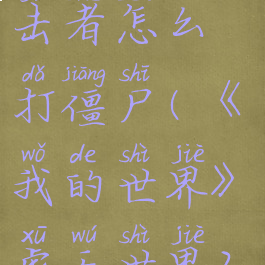 击者怎么
dǎ jiāng shī
打僵尸(《
wǒ de shì jiè
我的世界》
xū wú shì jiè
虚无世界?